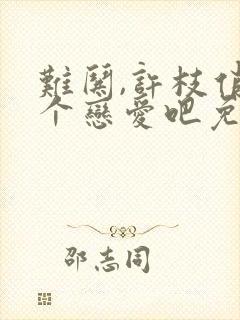 難關,許枝俏
个戀愛吧免
邵志同